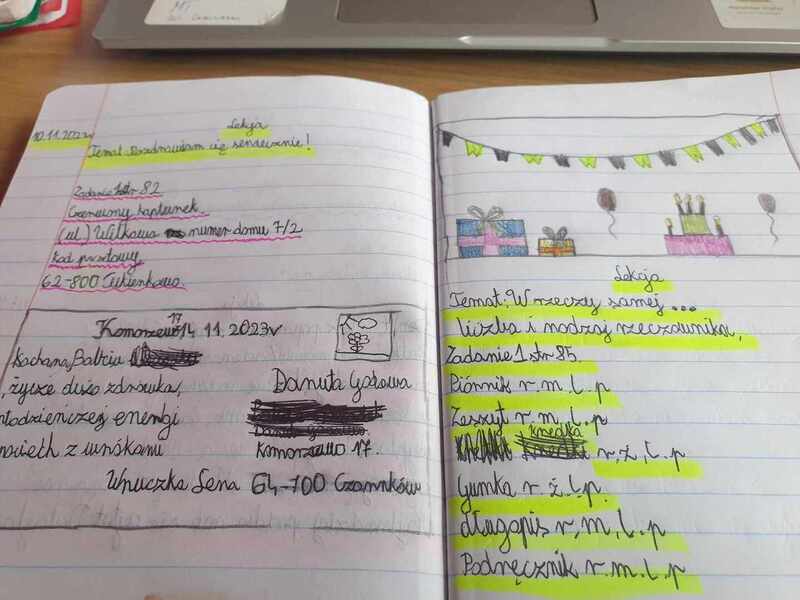 10.11.2023r
Lekcja
Temat: Pozdrawiam cię serdecznie!
Zadanie 1 str 82
Czerwony kapturek
(ul.) Wilkowa numer domu 7/2
Kod pocztowy
62-800 Cukierkowo.
Komorzewo 14 11. 2023r
17
Kochana Babciu
życze dużo zdrowka,
młodzieńczej energi
z wnókami
Wnuczka Lena
Danuta
Komorzewo 17.
64-700 Czarnków
Lekcja
Temat: W rzeczy samej ...
liczba i rodzaj rzeczownika,
Zadanie 1 str 85.
Piórnik r.m.l.p
Zeszyt r.m.l.p
kredka
r,ż,l.p
Gumka r.ż.l.p.
długopis r,m,l.p
Podręcznik r.m.l.p